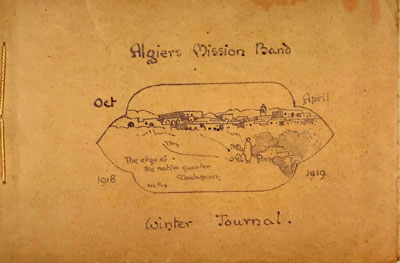 Algiers Mission Band
Oct April
The edge of
the native quarter
1918 1919
Winter Journal.